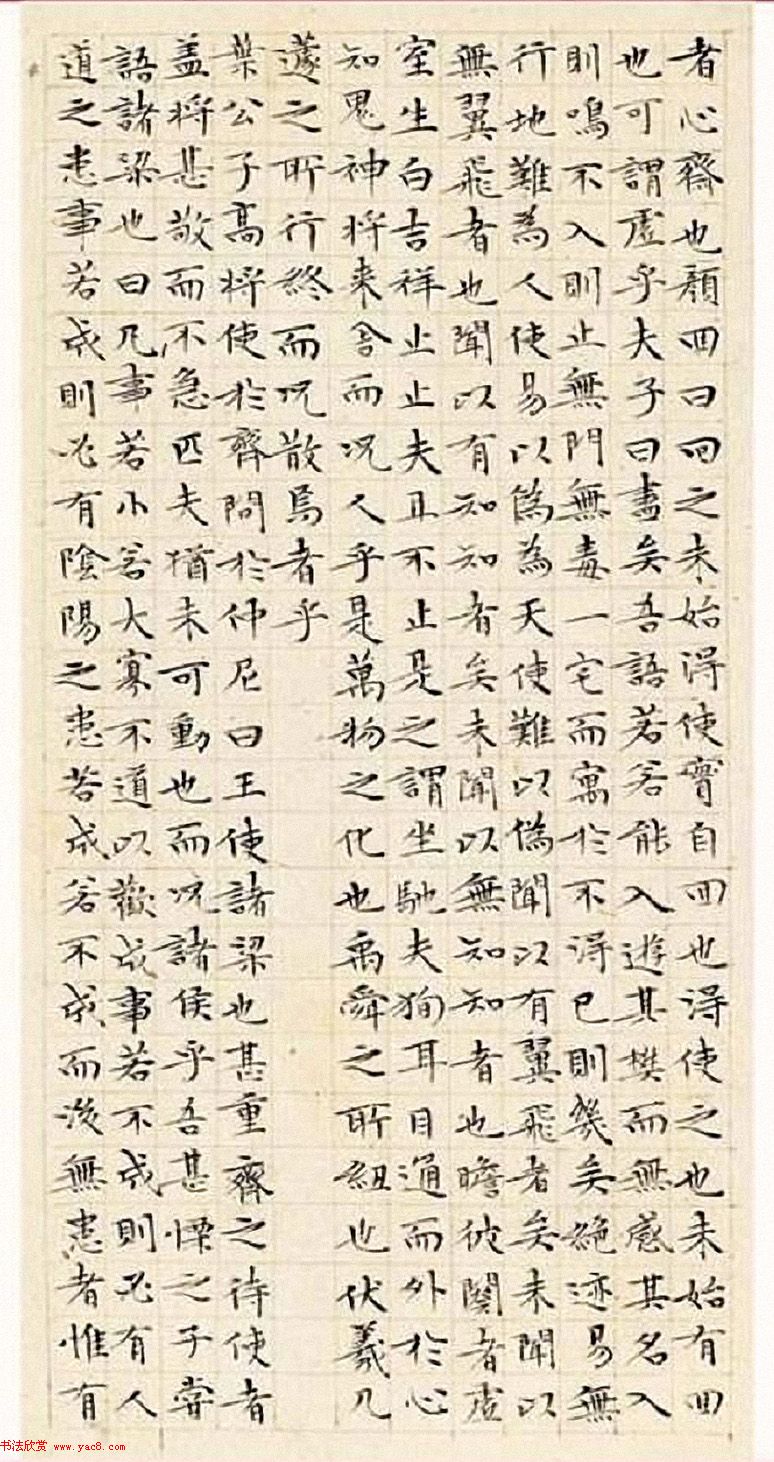 者心齋也顏回曰回之未始得使實自回也得使之也未始有回
也可謂虛乎夫子曰盡矣吾語若若能入遊其樊而無感其名入
則鳴不入則止無門無毒一宅而寓於不得已則幾矣絕迹易無
行地難為人使易以偽為天使難以偽聞以有翼飛者矣未聞以
無翼飛者也聞以有知知者矣未聞以無知知者也瞻彼闋者虛
室生白吉祥止止夫且不止是之謂坐馳夫徇耳目通而外於心
知鬼神將來舍而況人乎是萬物之化也禹舜之所紐也伏羲几
蘧之所行終而況散焉者乎
葉公子高將使於齊問於仲尼曰王使諸梁也甚重齊之待使者
盖將甚敬而不急匹夫猶未可動也而況諸侯乎吾甚慄之子嘗
語諸梁也曰凡事若小若大寡不道以歡成事若不成則必有人
道之患事若成則必有陰陽之患若成若不成而後無患者惟有
书法欣赏 www.yac8.com